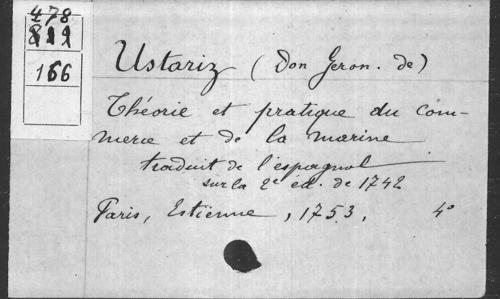 478
811
166
Ustariz (Don Geron. de)
Théorie et pratique du com-
merce et de la marine
traduit de l'espagnol
sur la 2e éd. de 1742
Paris, Estienne, 1753, 4°